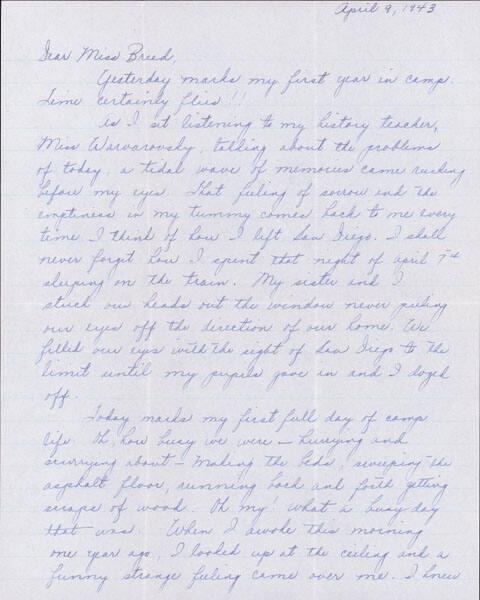 April 9, 1943
Dear Miss Breed,
Yesterday marks my first year in camp.
Time certainly flies!!
As I sit listening to my history teacher,
Miss Warvarovsky, talking about the problems
of today, a tidal wave of memories came rushing
before my eyes. That feeling of sorrow and the
emptiness in my tummy comes back to me every
time I think of how I left San Diego. I shall
never forget how I spent that night of april 7th
sleeping on the train. My sister and I
stuck our heads out the window never pulling
our eyes off the direction of our home. We
filled our eyes with the sight of San Diego to the
limit until my pupils gave in and I dozed
off.
Today marks my first full day of camp
life. Oh, how busy we were — hurrying and
scurrying about — making the beds, sweeping the
asphalt floor, running back and forth getting
scraps of wood. Oh my! what a busy day
that was. When I awoke this morning
one year ago, I looked up at the ceiling and a
funny strange feeling came over me. I knew